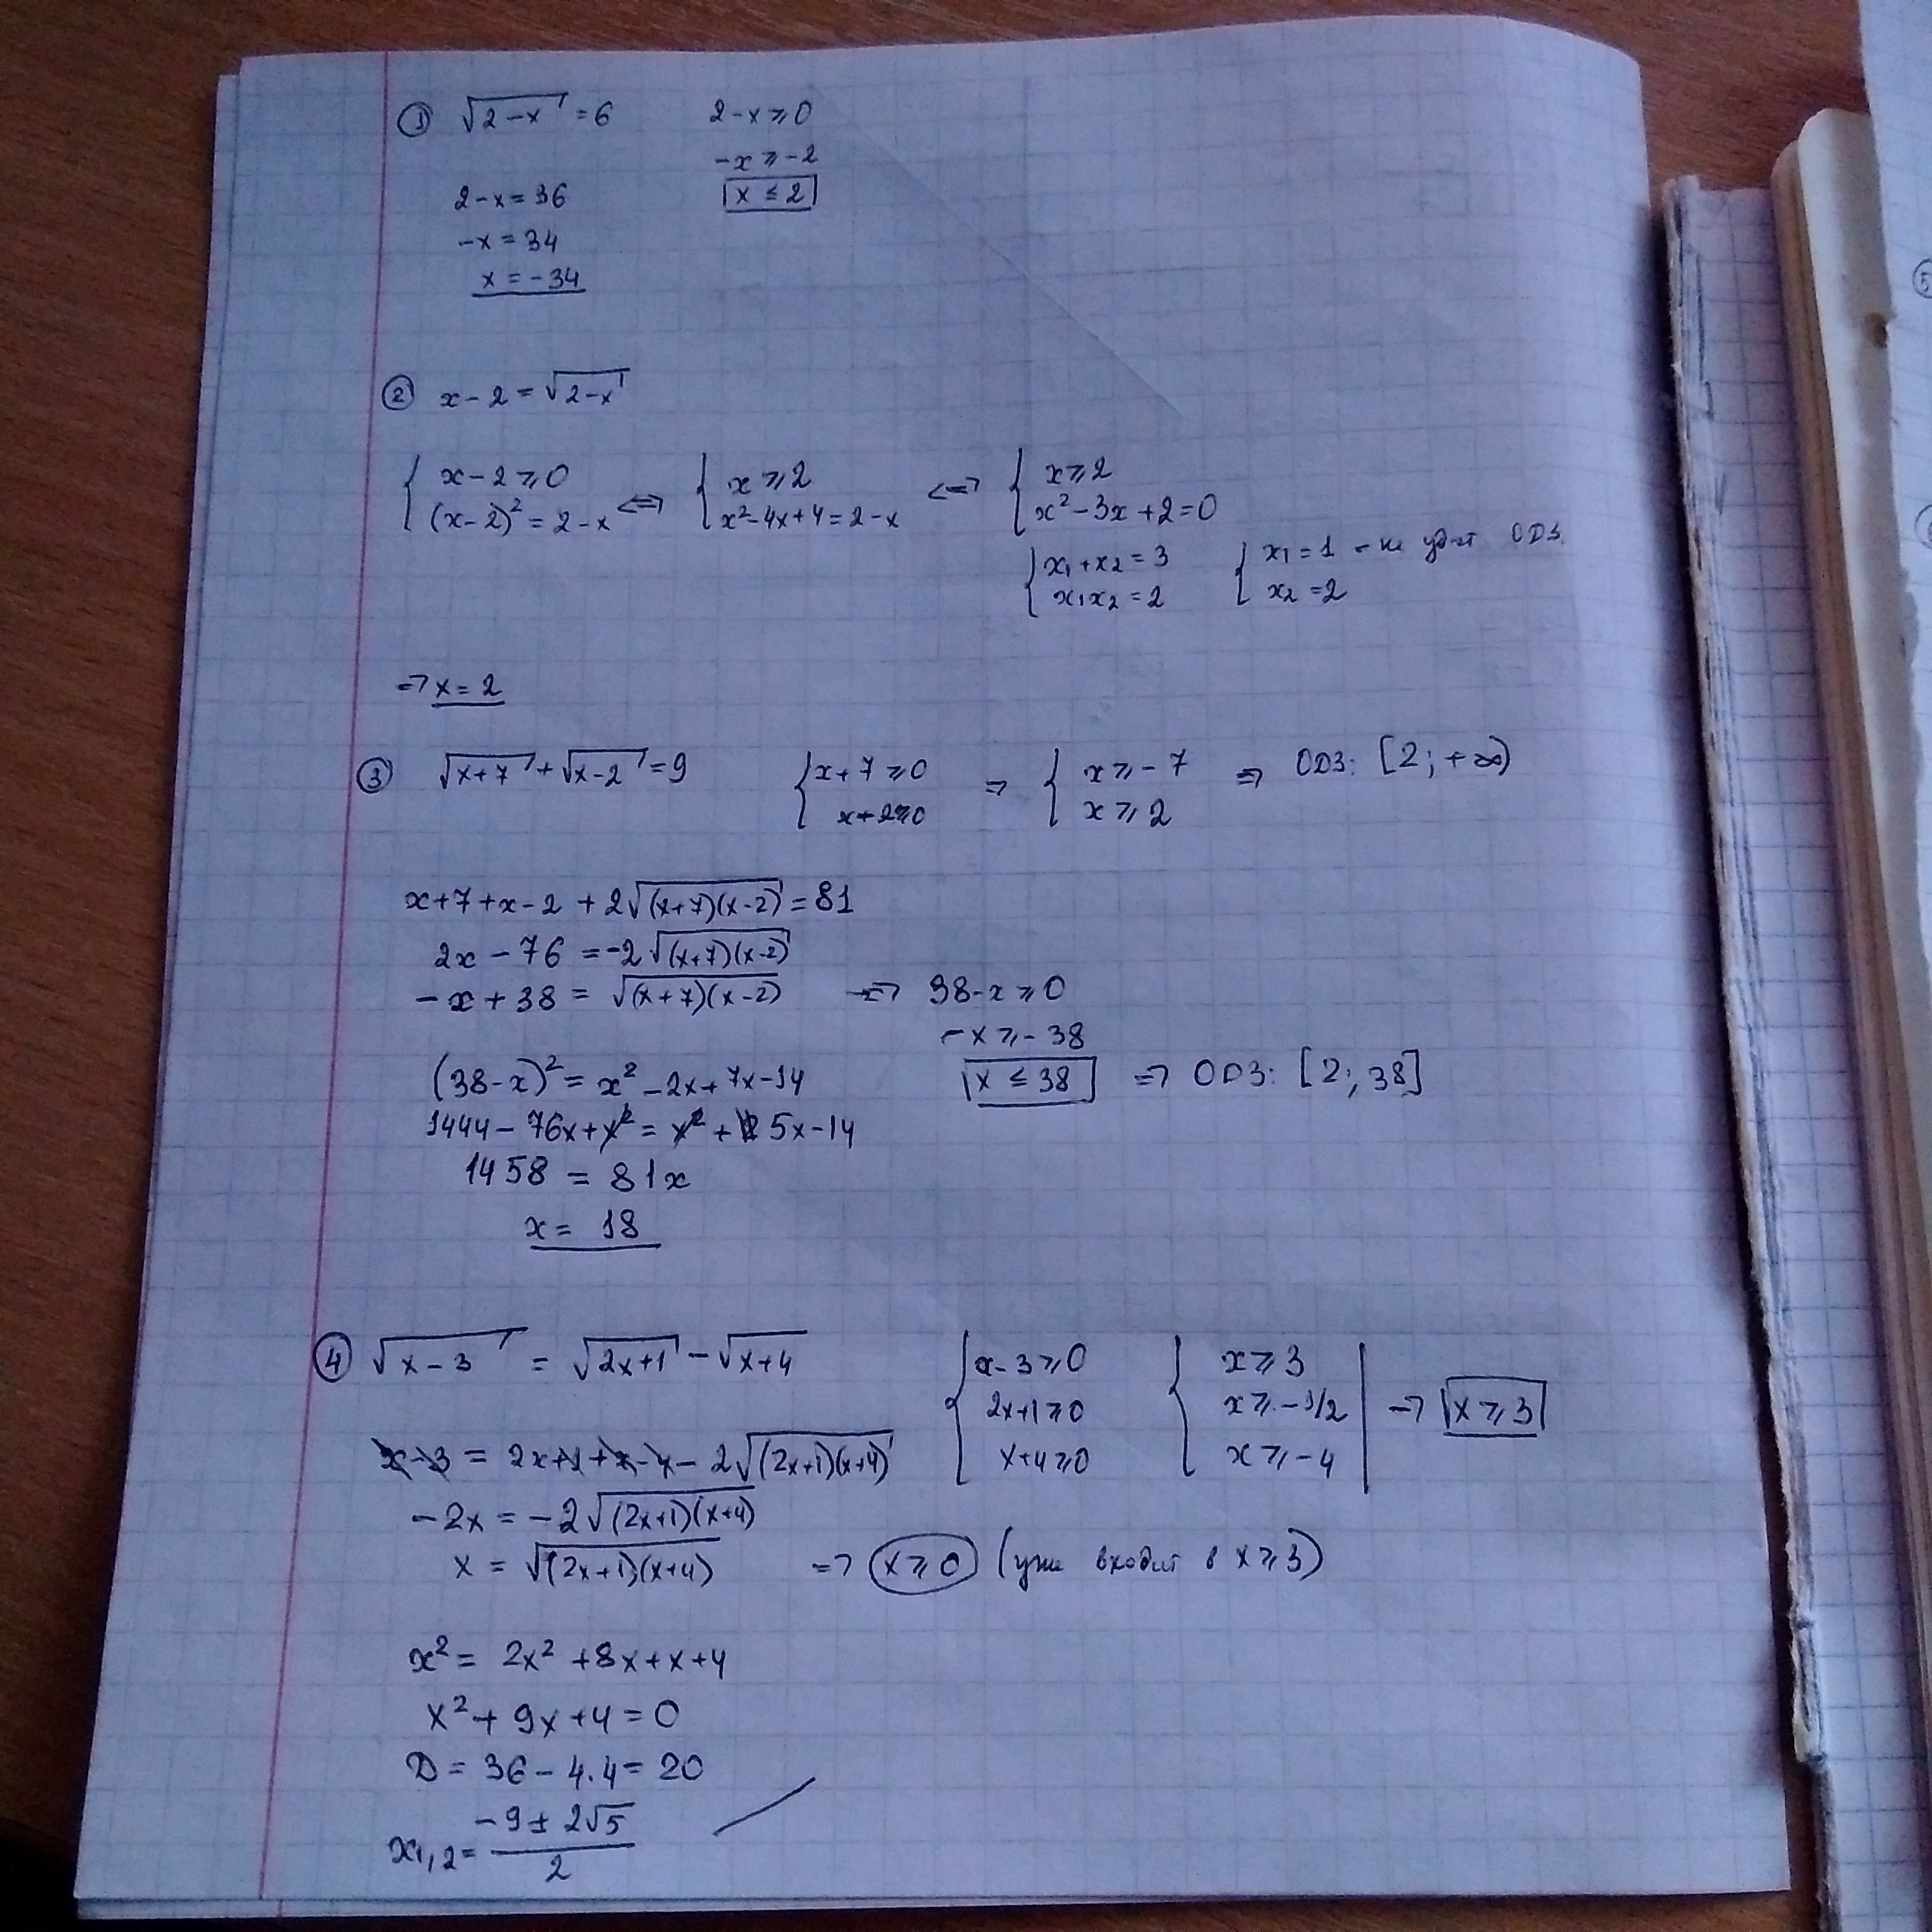 ① √(2-x) = 6    2-x ⩾ 0
-x ⩾ -2
2-x = 36    x ≤ 2
-x = 34
x = -34
② x-2 = √(2-x)
{ x-2 ⩾ 0    { x ⩾ 2    { x ⩾ 2
(x-2)² = 2-x <=> x²-4x+4 = 2-x <=> x²-3x+2=0
{ x₁+x₂ = 3    { x₁ = 1 - не уд-ет ОДЗ.
x₁x₂ = 2    x₂ = 2
=> x = 2
③ √(x+7) + √(x-2) = 9    { x+7 ⩾ 0 => { x ⩾ -7 => ОДЗ: [2; +∞)
x+2⩾0    x ⩾ 2
x+7+x-2 + 2√((x+7)(x-2)) = 81
2x - 76 = -2√((x+7)(x-2))
-x + 38 = √((x+7)(x-2)) => 38-x ⩾ 0
-x ⩾ -38
(38-x)² = x² -2x+7x-14    x ≤ 38 => ОДЗ: [2; 38]
1444 - 76x + x² = x² + 5x-14
1458 = 81x
x = 18
④ √(x-3) = √(2x+1) - √(x+4)    { x-3 ⩾ 0    { x ⩾ 3
2x+1 ⩾ 0    x ⩾ -1/2 | => x ⩾ 3
x+4 ⩾ 0    x ⩾ -4
x-3 = 2x+1+x-4 - 2√((2x+1)(x+4))
-2x = -2√((2x+1)(x+4))
x = √((2x+1)(x+4)) => x ⩾ 0 (уже входит в x ⩾ 3)
x² = 2x² +8x+x+4
x² + 9x + 4 = 0
D = 36 - 4.4 = 20
x₁,₂ = (-9 ± 2√5)/2
5